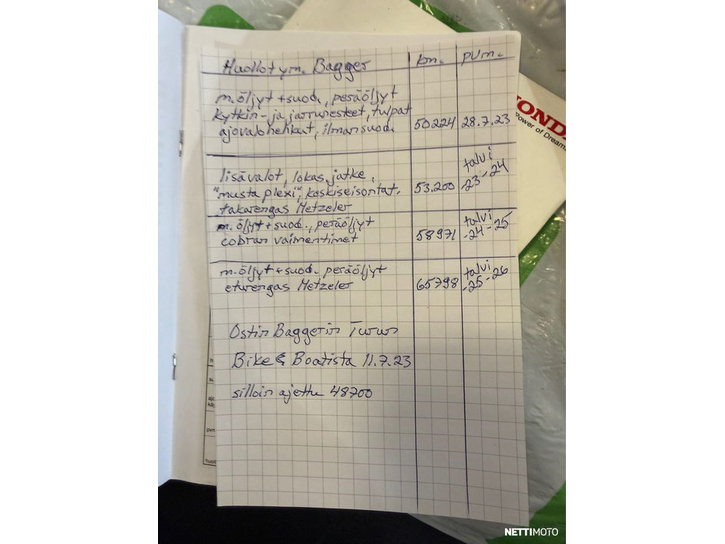 Huollot ym. Bagger km. pvm.
m. öljyt + suod., peräöljyt
kytkin- ja jarrunesteet, tulpat
ajovalohehkut, ilmansuod. 50224 28.7.23
lisävalot, lokas. jatke,
"musta plexi", keskiseisontat.
takarengas Metzeler 53.200 talvi -23-24
m. öljyt + suod., peräöljyt
cobran vaimentimet 58971 talvi -24-25
m. öljyt + suod. peräöljyt
eturengas Metzeler 65798 talvi -25-26
Ostin Baggerin Turun
Bike & Boatista 11.7.23
silloin ajettu 48700
HONDA
Power of Dreams
NETTIMOTO